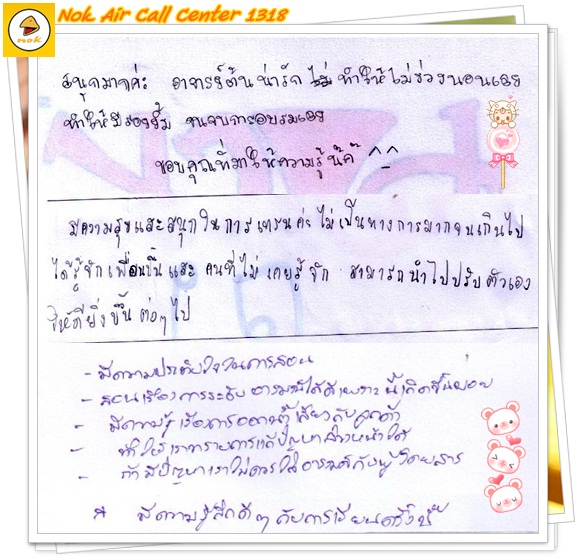 Nok Air Call Center 1318
nok
สนุกมากค่ะ อาจารย์ต้นน่ารัก ทำให้ไม่ง่วงนอนเลย
ทำให้มีรอยยิ้ม จนจบการอบรมเลย
ขอบคุณที่มาให้ความรู้นี้ค่ ^^
มีความสุขและสนุกในการเทรนค่ะ ไม่เป็นทางการมากจนเกินไป
ได้รู้จักเพื่อนขึ้นและ คนที่ไม่เคยรู้จัก สามารถนำไปปรับตัวเอง
ให้ดียิ่งขึ้น ต่อๆ ไป
- มีความประทับใจในการสอน
- สอนเรื่องการระงับ อารมณ์ได้ดีเพราะ เกิดขึ้นบ่อย
- มีความรู้ เรื่องการ เกี่ยวกับลูกค้า
- ทำให้เราสามารถแก้ปัญหาเฉพาะหน้าได้
- ถ้ามีปัญหาเราไม่ควรใส่อารมณ์กับผู้โดยสาร
* มีความรู้สึกดีๆ กับการเรียนครั้งนี้